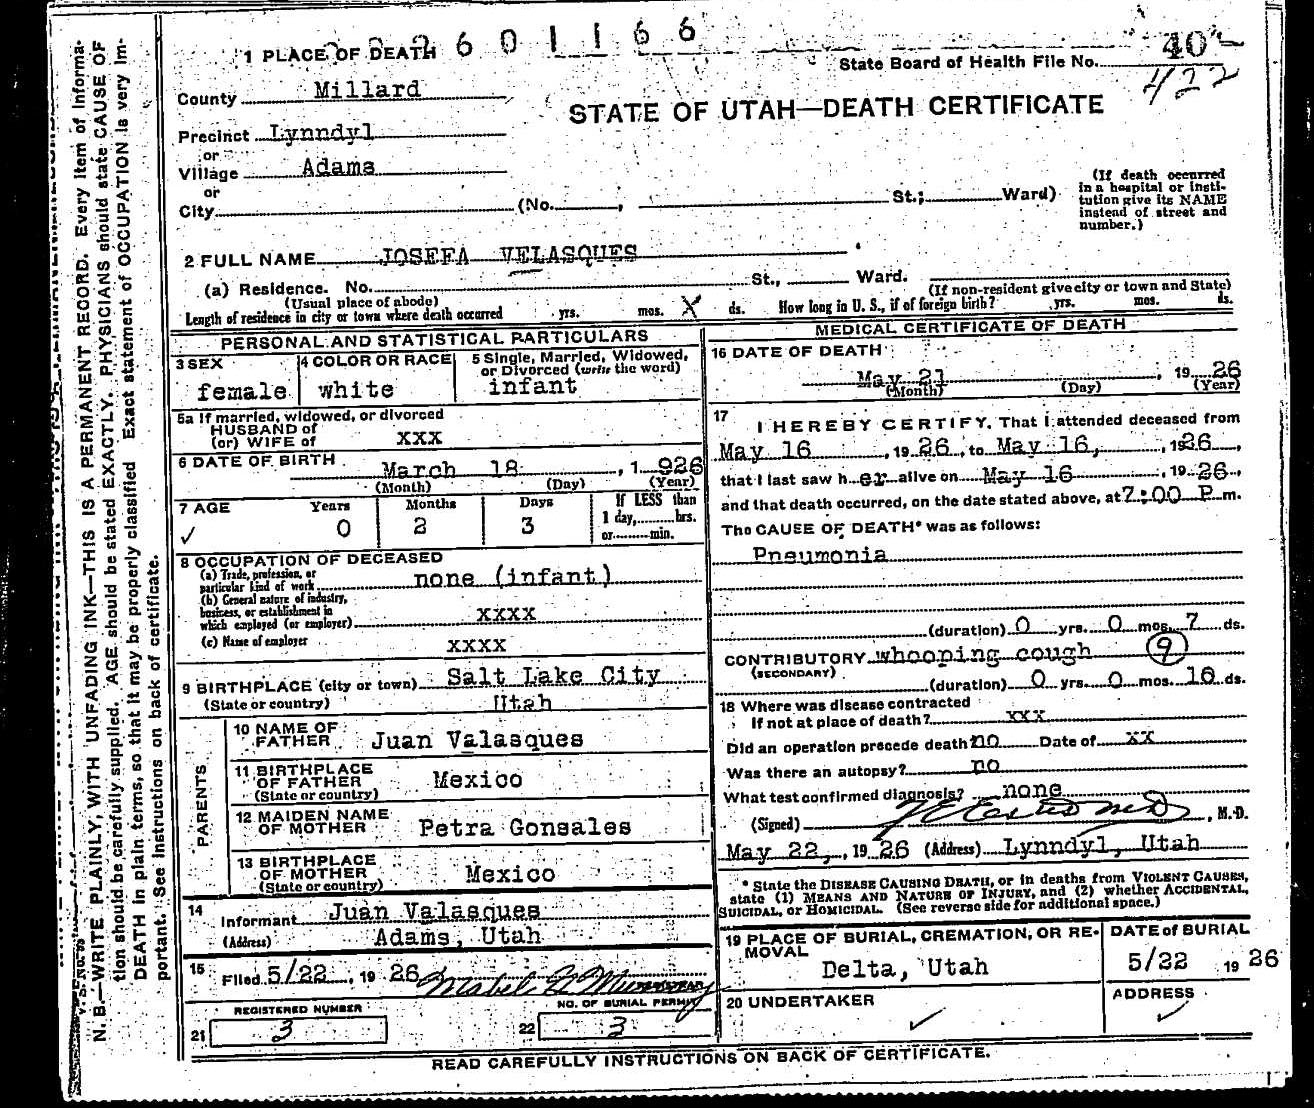 2601166
1 PLACE OF DEATH
40
State Board of Health File No.
422
County Millard
STATE OF UTAH—DEATH CERTIFICATE
Precinct Lynndyl
or
Village Adams
or
City (No. , St.; Ward)
(If death occurred
in a hospital or insti-
tution give its NAME
instead of street and
number.)
2 FULL NAME JOSEFA VELASQUES
(a) Residence. No. St., Ward.
(Usual place of abode) (If non-resident give city or town and State)
Length of residence in city or town where death occurred yrs. mos. X ds. How long in U. S., if of foreign birth? yrs. mos. ds.
PERSONAL AND STATISTICAL PARTICULARS
3 SEX
female
4 COLOR OR RACE
white
5 Single, Married, Widowed,
or Divorced (write the word)
infant
5a If married, widowed, or divorced
HUSBAND of
(or) WIFE of xxx
6 DATE OF BIRTH March 18 , 1 926
(Month) (Day) (Year)
7 AGE Years Months Days If LESS than
✓ 0 2 3 1 day, hrs.
or min.
8 OCCUPATION OF DECEASED
(a) Trade, profession, or
particular kind of work none (infant)
(b) General nature of industry,
business, or establishment in
which employed (or employer) xxxx
(c) Name of employer xxxx
9 BIRTHPLACE (city or town) Salt Lake City
(State or country) Utah
PARENTS
10 NAME OF
FATHER Juan Valasques
11 BIRTHPLACE
OF FATHER Mexico
(State or country)
12 MAIDEN NAME
OF MOTHER Petra Gonsales
13 BIRTHPLACE
OF MOTHER Mexico
(State or country)
14
Informant Juan Valasques
(Address) Adams, Utah
15
Filed 5/22 , 19 26
REGISTERED NUMBER
21 3
NO. OF BURIAL PERMIT
22 3
MEDICAL CERTIFICATE OF DEATH
16 DATE OF DEATH
May 21 , 19 26
(Month) (Day) (Year)
17
I HEREBY CERTIFY, That I attended deceased from
May 16 , 19 26 , to May 16, , 1926 ,
that I last saw h er alive on May 16 , 19 26 ,
and that death occurred, on the date stated above, at 7:00 P m.
The CAUSE OF DEATH* was as follows:
Pneumonia
(duration) 0 yrs. 0 mos. 7 ds.
CONTRIBUTORY whooping cough 9
(SECONDARY)
(duration) 0 yrs. 0 mos. 10 ds.
18 Where was disease contracted
If not at place of death? xxx
Did an operation precede death? no Date of xx
Was there an autopsy? no
What test confirmed diagnosis? none
(Signed) M D , M.D.
May 22, , 19 26 (Address) Lynndyl, Utah
* State the DISEASE CAUSING DEATH, or in deaths from VIOLENT CAUSES,
state (1) MEANS AND NATURE OF INJURY, and (2) whether ACCIDENTAL,
SUICIDAL, or HOMICIDAL. (See reverse side for additional space.)
19 PLACE OF BURIAL, CREMATION, OR RE-
MOVAL
Delta, Utah
DATE of BURIAL
5/22 19 26
20 UNDERTAKER
✓
ADDRESS
✓
READ CAREFULLY INSTRUCTIONS ON BACK OF CERTIFICATE.
N. B.—WRITE PLAINLY, WITH UNFADING INK—THIS IS A PERMANENT RECORD. Every item of Informa-
tion should be carefully supplied. AGE should be stated EXACTLY. PHYSICIANS should state CAUSE OF
DEATH in plain terms, so that it may be properly classified Exact statement of OCCUPATION is very im-
portant. See Instructions on back of certificate.